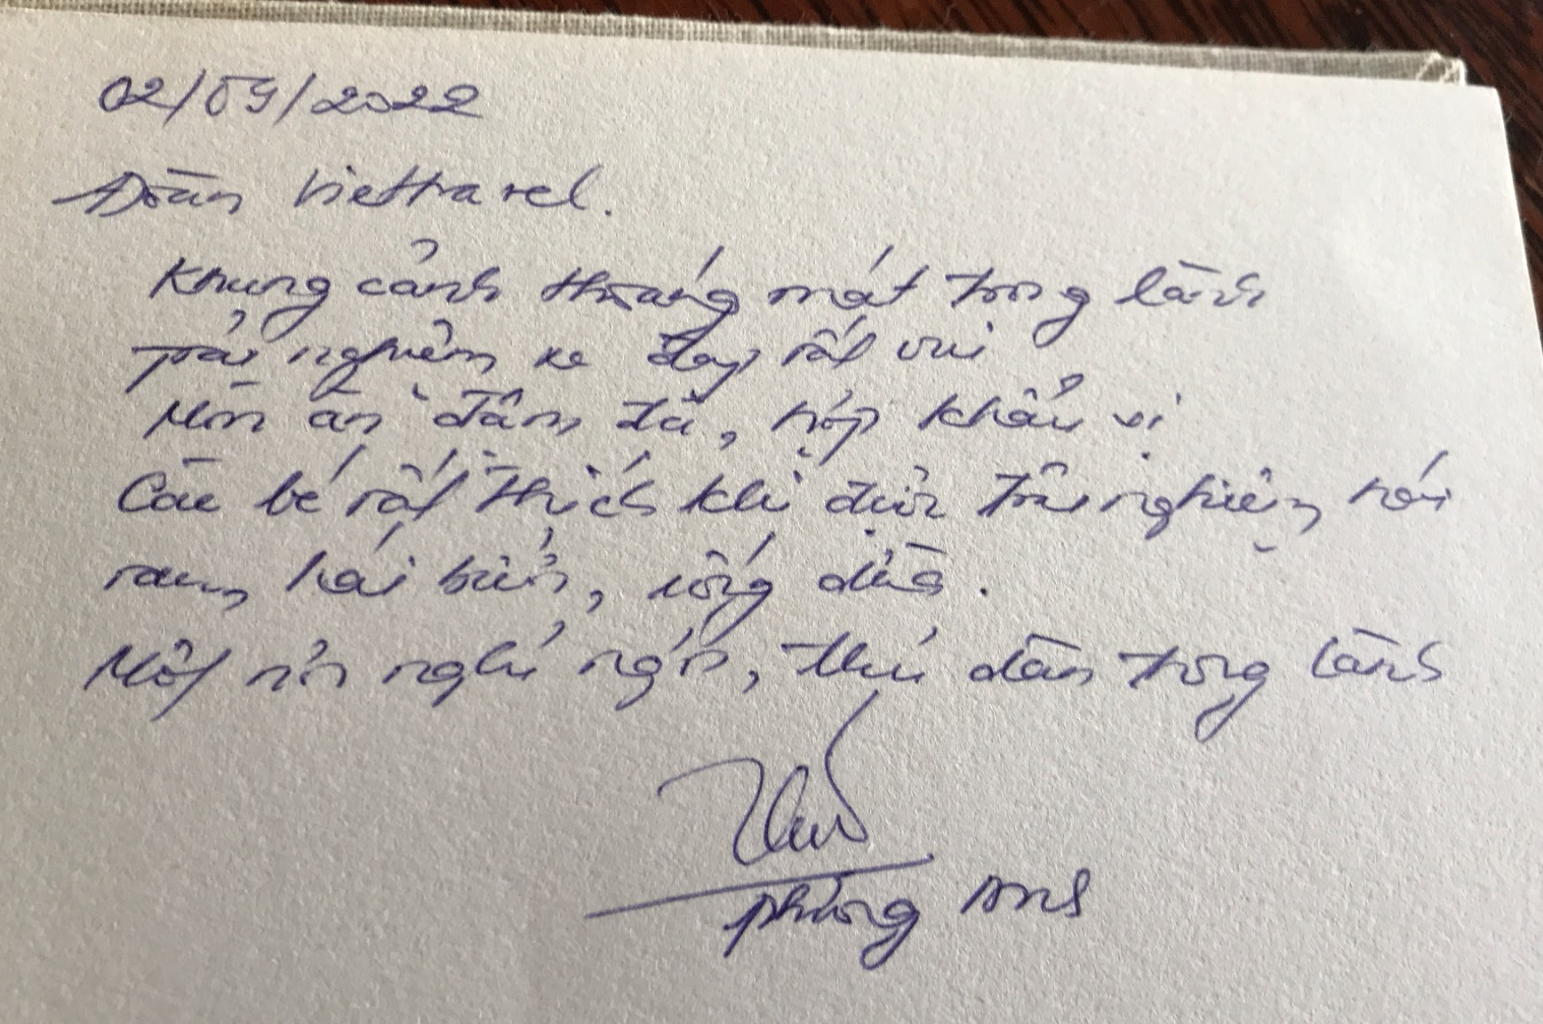 02/09/2022
Đoàn Viettravel.
Khung cảnh thoáng mát trong lành
trải nghiệm xe đạp rất vui
Món ăn đậm đà, hợp khẩu vị
Các bé rất thích khi được trải nghiệm hái
rau, hái bưởi, uống dừa.
Một nơi nghỉ ngơi, thư dãn trong lành
Phương Anh